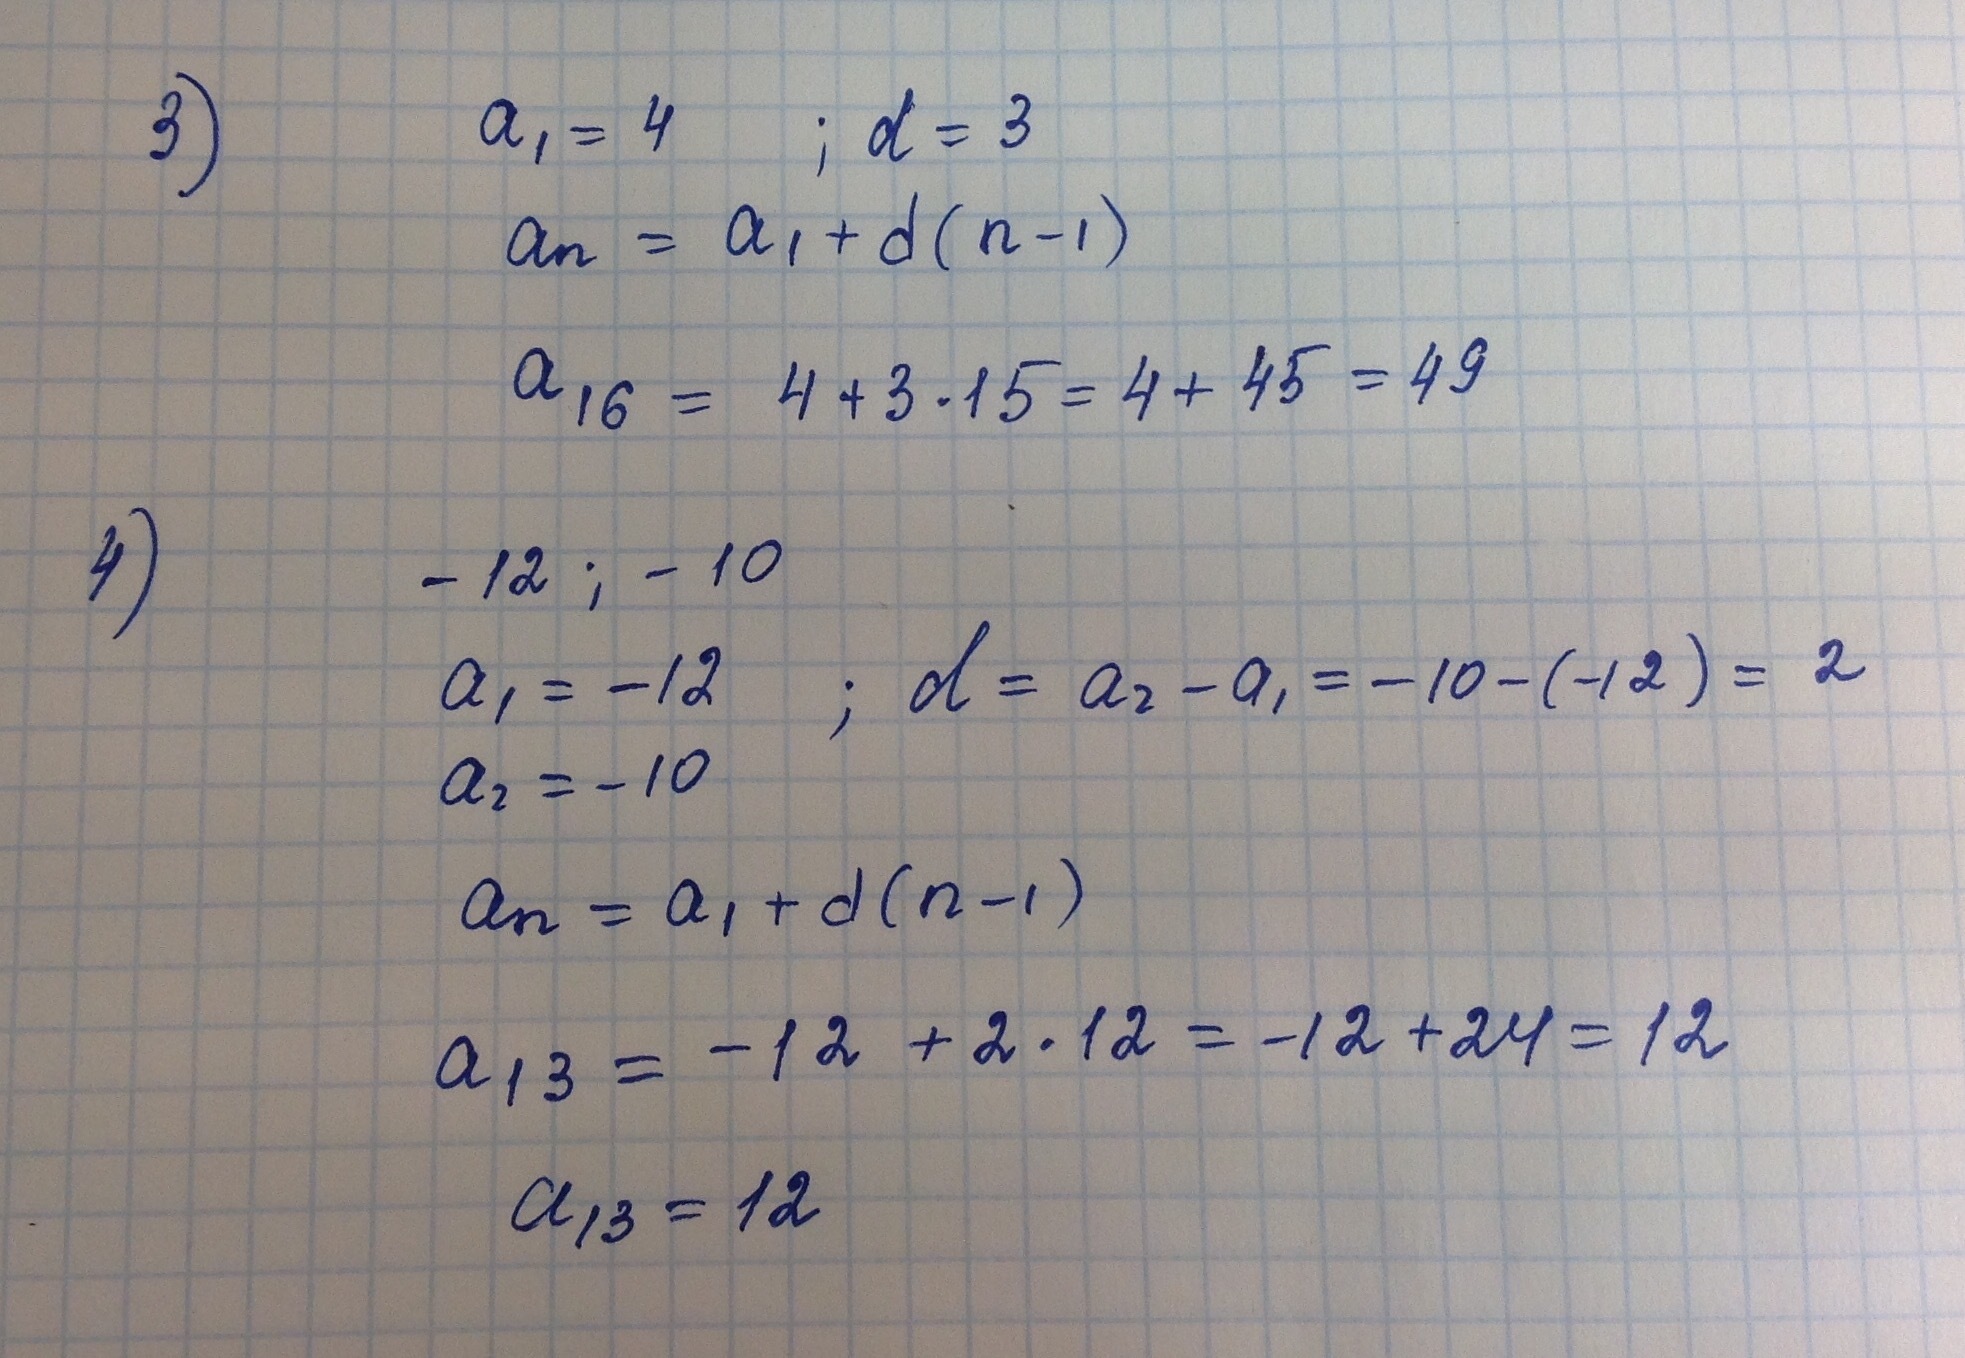 3) a₁ = 4 ; d = 3
aₙ = a₁ + d(n-1)
a₁₆ = 4+3·15 = 4+45 = 49
4) -12 ; -10
a₁ = -12 ; d = a₂ - a₁ = -10-(-12) = 2
a₂ = -10
aₙ = a₁ + d(n-1)
a₁₃ = -12 + 2·12 = -12+24 = 12
a₁₃ = 12